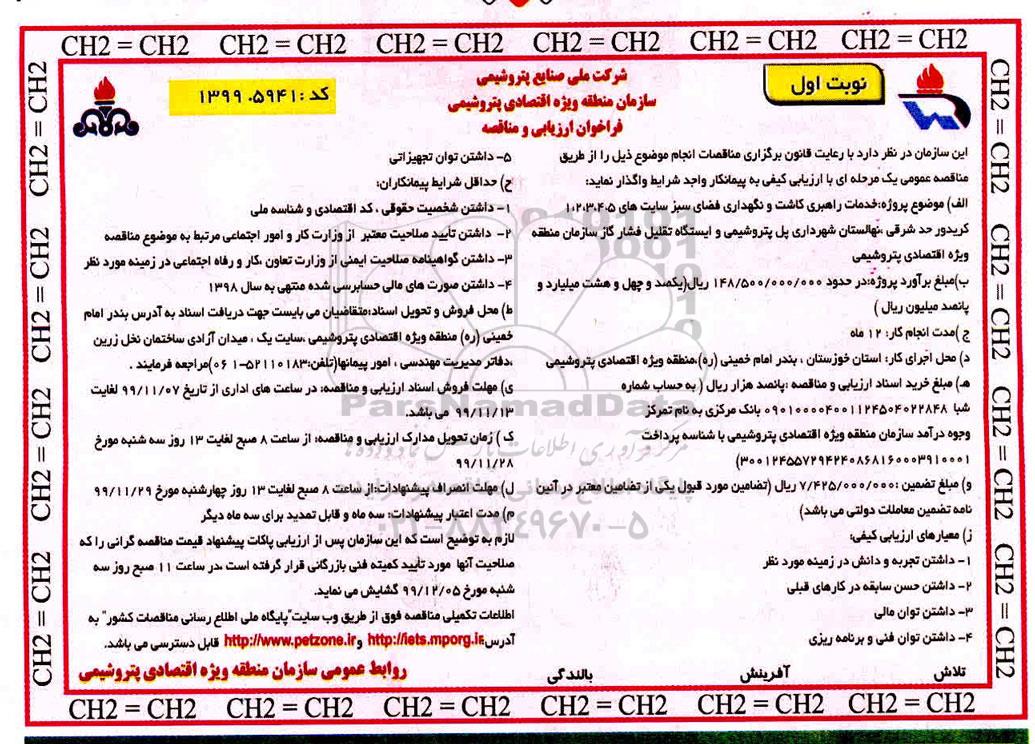 CH2 = CH2 CH2 = CH2 CH2 = CH2 CH2 = CH2 CH2 = CH2 CH2 = CH2
نوبت اول
شرکت ملی صنایع پتروشیمی
سازمان منطقه ویژه اقتصادی پتروشیمی
فراخوان ارزیابی و مناقصه
کد : ۱۳۹۹۰۵۹۴۱
این سازمان در نظر دارد با رعایت قانون برگزاری مناقصات انجام موضوع ذیل را از طریق
مناقصه عمومی یک مرحله ای با ارزیابی کیفی به پیمانکار واجد شرایط واگذار نماید:
الف) موضوع پروژه:خدمات راهبری کاشت و نگهداری فضای سبز سایت های ۱،۲،۳،۴،۵
کریدور حد شرقی ،نهالستان شهرداری پل پتروشیمی و ایستگاه تقلیل فشار گاز سازمان منطقه
ویژه اقتصادی پتروشیمی
ب)مبلغ برآورد پروژه:در حدود ۱۴۸/۵۰۰/۰۰۰/۰۰۰ ریال(یکصد و چهل و هشت میلیارد و
پانصد میلیون ریال )
ج )مدت انجام کار: ۱۲ ماه
د) محل اجرای کار: استان خوزستان ، بندر امام خمینی (ره)،منطقه ویژه اقتصادی پتروشیمی
هـ) مبلغ خرید اسناد ارزیابی و مناقصه :پانصد هزار ریال ( به حساب شماره
شبا ۰۹۰۱۰۰۰۰۴۰۰۱۱۲۴۵۰۴۰۲۲۸۴۸ بانک مرکزی به نام تمرکز
وجوه درآمد سازمان منطقه ویژه اقتصادی پتروشیمی با شناسه پرداخت
۳۰۰۱۲۴۵۵۷۲۹۴۲۴۰۸۶۸۱۶۰۰۰۳۹۱۰۰۰۱)
و) مبلغ تضمین :۷/۴۲۵/۰۰۰/۰۰۰ ریال (تضامین مورد قبول یکی از تضامین معتبر در آئین
نامه تضمین معاملات دولتی می باشد)
ز) معیارهای ارزیابی کیفی:
۱- داشتن تجربه و دانش در زمینه مورد نظر
۲- داشتن حسن سابقه در کارهای قبلی
۳- داشتن توان مالی
۴- داشتن توان فنی و برنامه ریزی
۵- داشتن توان تجهیزاتی
ح) حداقل شرایط پیمانکاران:
۱- داشتن شخصیت حقوقی ، کد اقتصادی و شناسه ملی
۲- داشتن تأیید صلاحیت معتبر از وزارت کار و امور اجتماعی مرتبط به موضوع مناقصه
۳- داشتن گواهینامه صلاحیت ایمنی از وزارت تعاون ،کار و رفاه اجتماعی در زمینه مورد نظر
۴- داشتن صورت های مالی حسابرسی شده منتهی به سال ۱۳۹۸
ط) محل فروش و تحویل اسناد:متقاضیان می بایست جهت دریافت اسناد به آدرس بندر امام
خمینی (ره) منطقه ویژه اقتصادی پتروشیمی ،سایت یک ، میدان آزادی ساختمان نخل زرین
،دفاتر مدیریت مهندسی ، امور پیمانها(تلفن:۵۲۱۱۰۱۸۳-۰۶۱)مراجعه فرمایند .
ی) مهلت فروش اسناد ارزیابی و مناقصه: در ساعت های اداری از تاریخ ۹۹/۱۱/۰۷ لغایت
۹۹/۱۱/۱۳ می باشد.
ک ) زمان تحویل مدارک ارزیابی و مناقصه: از ساعت ۸ صبح لغایت ۱۳ روز سه شنبه مورخ
۹۹/۱۱/۲۸
ل) مهلت انصراف پیشنهادات:از ساعت ۸ صبح لغایت ۱۳ روز چهارشنبه مورخ ۹۹/۱۱/۲۹
م) مدت اعتبار پیشنهادات: سه ماه و قابل تمدید برای سه ماه دیگر
لازم به توضیح است که این سازمان پس از ارزیابی پاکات پیشنهاد قیمت مناقصه گرانی را که
صلاحیت آنها مورد تأیید کمیته فنی بازرگانی قرار گرفته است ،در ساعت ۱۱ صبح روز سه
شنبه مورخ ۹۹/۱۲/۰۵ گشایش می نماید.
اطلاعات تکمیلی مناقصه فوق از طریق وب سایت"پایگاه ملی اطلاع رسانی مناقصات کشور" به
آدرس:http://iets.mporg.ir و http://www.petzone.ir قابل دسترسی می باشد.
تلاش آفرینش بالندگی
روابط عمومی سازمان منطقه ویژه اقتصادی پتروشیمی
ParsNamadData
۰۲۱-۸۸۳۴۹۶۷۰-۵
CH2 = CH2 CH2 = CH2 CH2 = CH2 CH2 = CH2
CH2 = CH2 CH2 = CH2 CH2 = CH2 CH2 = CH2
CH2 = CH2 CH2 = CH2 CH2 = CH2 CH2 = CH2 CH2 = CH2 CH2 = CH2